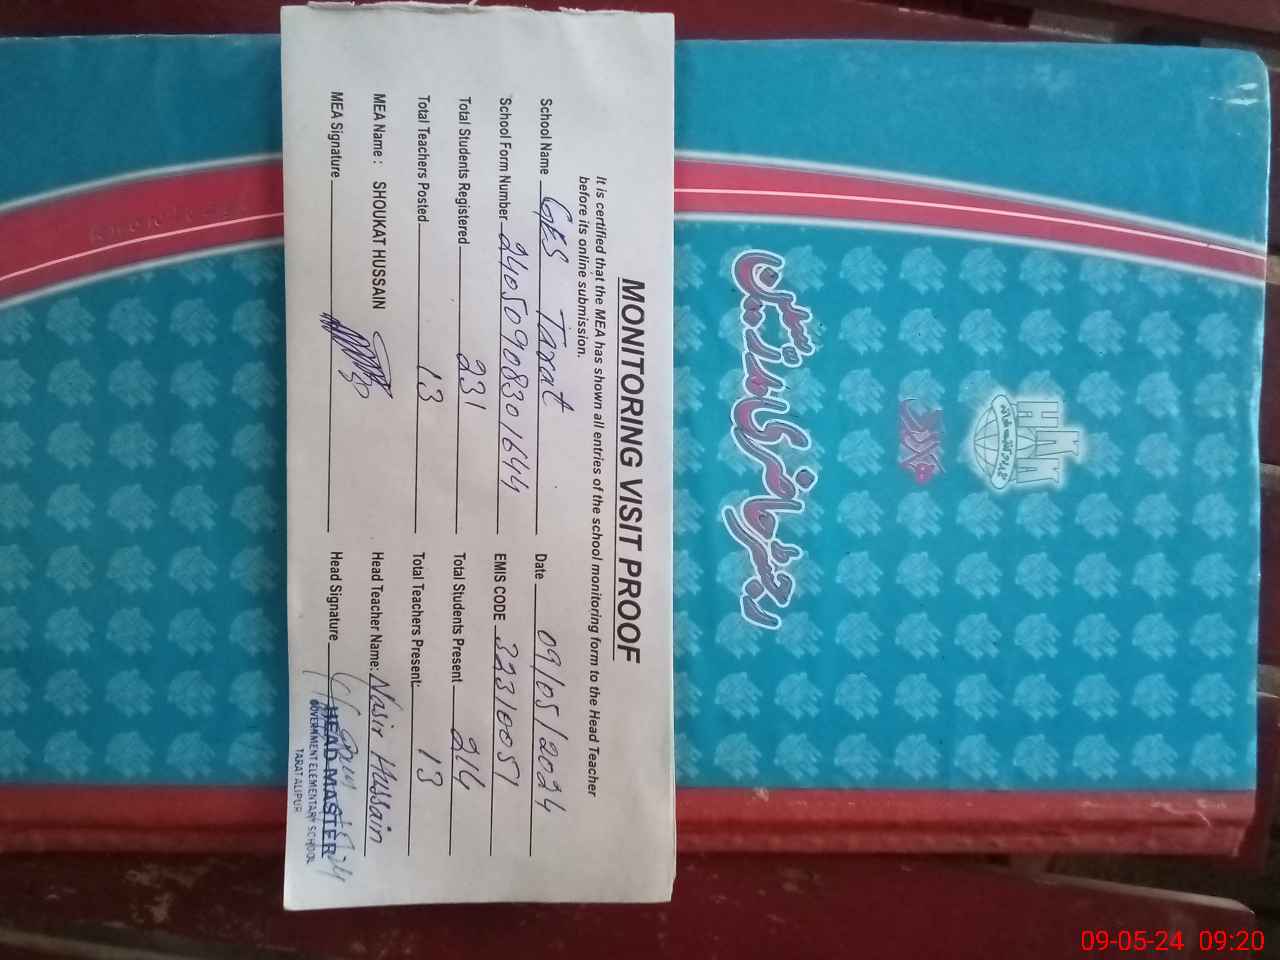 MONITORING VISIT PROOF
It is certified that the MEA has shown all entries of the school monitoring form to the Head Teacher
before its online submission.
School Name GES Tarat Date 09/05/2024
School Form Number 24050908301644 EMIS CODE 32310051
Total Students Registered 231 Total Students Present 214
Total Teachers Posted 13 Total Teachers Present: 13
MEA Name: SHOUKAT HUSSAIN Head Teacher Name: Nasir Hussain
MEA Signature Head Signature
HEAD MASTER
GOVERNMENT ELEMENTARY SCHOOL
TARAT ALIPUR
رجسٹر حاضری مدرسین
HKM
09-05-24 09:20